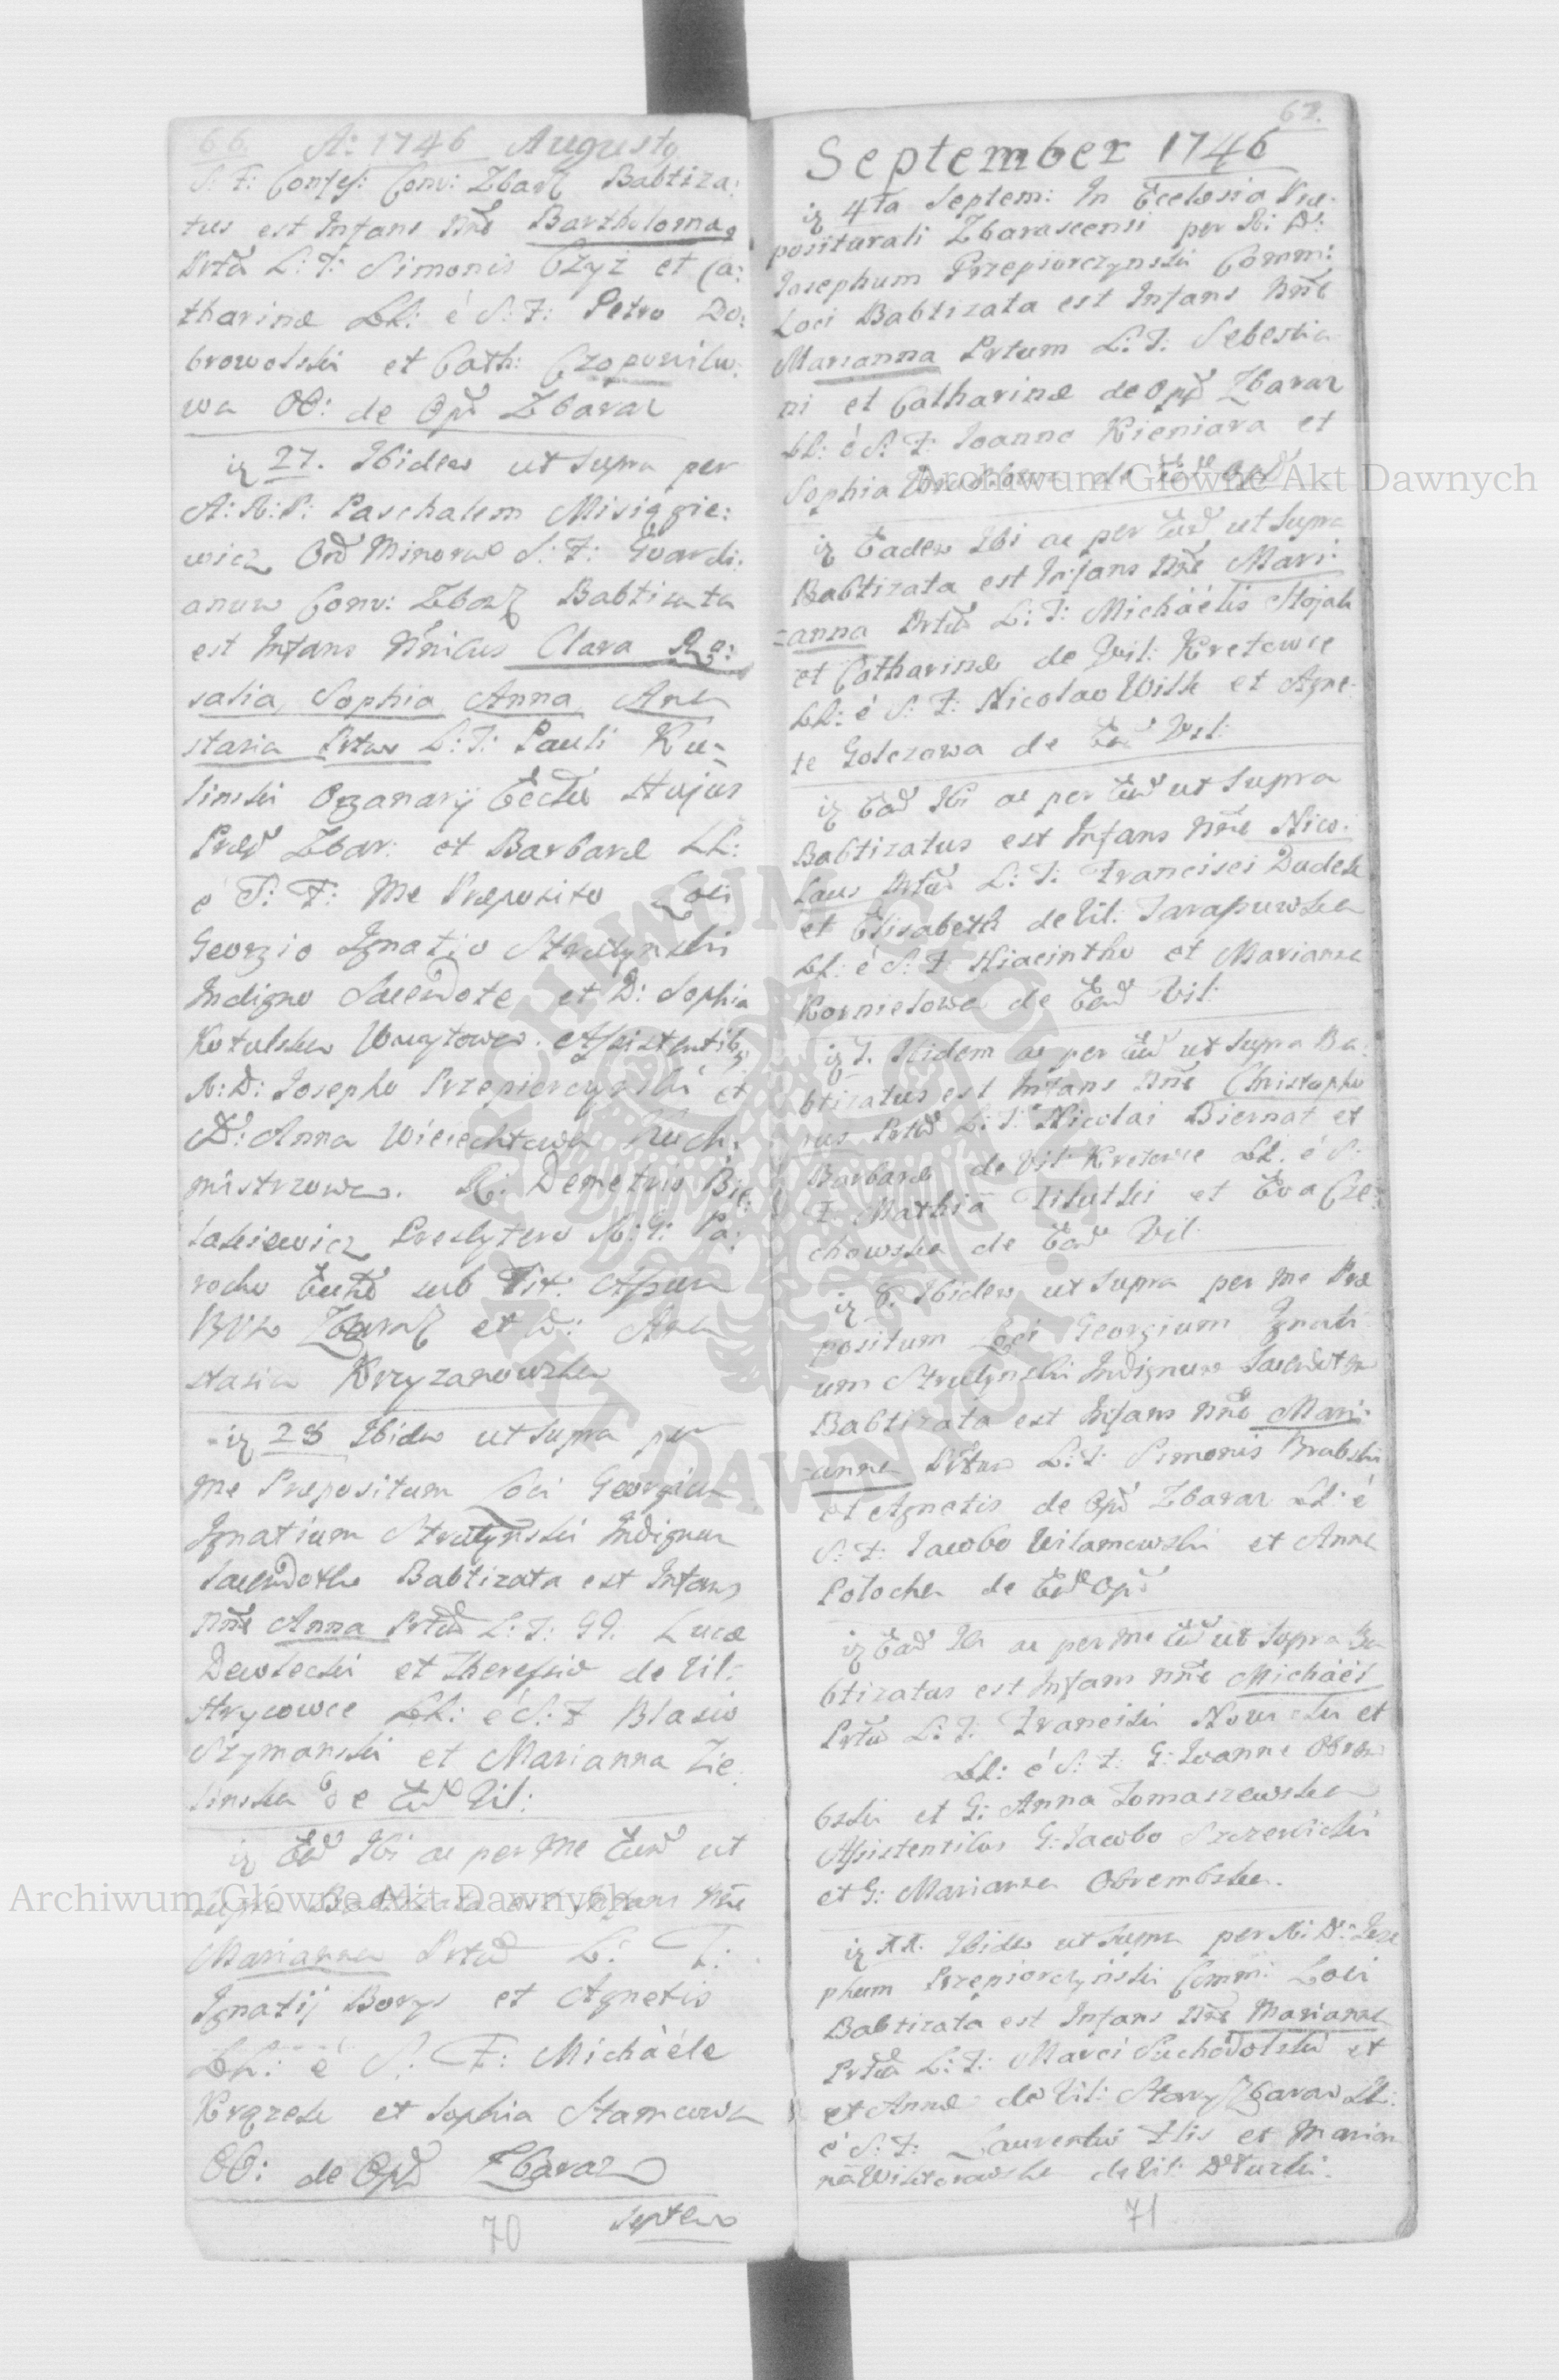 66. A: 1746 Augusto
S: F: Confes: Conv: Zbar Babtiza:
tus est Infans Nne Bartholomæ
Prtu L: T: Simonis Czyż et Ca:
tharinæ LL: é S: F: Petro Do:
browolski et Cath:
wa OO: de Opd Zbaraz
iz 27. Ibidem ut supra per
A: R: P: Paschalem
wicz Ord Minorum S: F: Gvardi:
anum Conv: Zbar Babtizata
est Infans Nnibus Clara Ro:
salia, Sophia Anna, Ana
stasia Prtum L: T: Pauli Ku-
linski Organarij Eccla Hujus
Præd Zbar: et Barbaræ LL:
é S: F: Me Præposito Loci
Georgio Ignatio Strutynski
Indigno Sacerdote et D: Sophia
Kotulska Woytowa. Assistentib
R: D: Josepho Przepiorczynski et
D: Anna Wieiechtowa Kuch:
mistrzowa. R: Demetrio Bie:
lasiewicz Presbytero R: G: Pa:
rocho sub Tit: Assum
BVM Zbaraz et D: Ana
stasia Krzyzanowska
iz 28 Ibidem ut supra per
me Præpositum Loci Georgium
Ignatium Strutynski Indignum
Sacerdotem Babtizata est Infans
Nne Anna Prtu L: T: GG. Lucæ
et Theressiæ de Vil:
Hrycowce LL: é S: F Blasio
Szymanski et Marianna Zie:
linska de Ead Vil:
iz Ead Ibi ac per Me Eund ut
supra Babtizata est Infans Nne
Marianna Prtu L: T:
Ignatij Borys et Agnetis
LL: é S: F: Michaéle
et Sophia Stamcowa
OO: de Opd Zbaraz
Septem
70
67.
September 1746
iz 4ta Septem: In Ecclesia Præ:
positurali Zbarascensi per R: D:
Josephum Przepiorczynski Comm:
Loci Babtizata est Infans Nne
Marianna Prtum L: T: Sebestia
ni et Catharinæ de Opd Zbaraz
LL: é S: F: Joanne Kieniara et
Sophia de Eod Opd
iz Eadem Ibi ac per Eund ut supra
Babtizata est Infans Nne Mari:
anna Prtu L: T: Michaélis Stojak
et Catharinæ de Vil: Kretowce
LL: é S: F: Nicolao Wilk et Agne:
te Golczowa de Ead Vil:
iz Ead Ibi ac per Eund ut supra
Babtizatus est Infans Nne Nico:
laus Prtu L: T: Francisci Dudek
et Elisabeth de Vil: Tarasuwka
LL: é S: F: Hiacintho et Marianna
Kornietowa de Ead Vil:
Ibidem ac per Eund ut supra Ba:
btizatus est Infans Nne Christopho
rus Prtu L: T: Nicolai Biernat et
Barbaræ de Vil: Kretowce LL: é S:
F: Mathia et Eva Cze:
chowska de Ead Vil:
iz 8. Ibidem ut supra per me Præ
positum Loci Georgium Ignati
um Strutynski Indignum Sacerdotem
Babtizata est Infans Nne Mari:
anna Prtum L: T: Simonis Brabski
et Agnetis de Opd Zbaraz LL: é
S: F: Jacobo et Anna
Potocka de Eod Opd
iz Ead Ibi ac per me Eund ut supra Ba
btizatus est Infans Nne Michaël
Prtu L: T: Francisci et
LL: é S: F: G: Joanne Obrem
bski et G: Anna Tomaszewska
Assistentibus G: Jacobo Szczerbicki
et G: Marianna Obrembska.
iz 11. Ibidem ut supra per R: D: Jose
phum Przepiorczynski Comm: Loci
Babtizata est Infans Nne Marianna
Prtu L: T: Marci Suchodolski et
et Annæ de Vil: Stary Zbaraz LL:
é S: F: Laurentio Flis et Marian
na de Vil:
71
Archiwum Główne Akt Dawnych
Archiwum Główne Akt Dawnych
ARCHIWUM GŁÓWNE AKT DAWNYCH